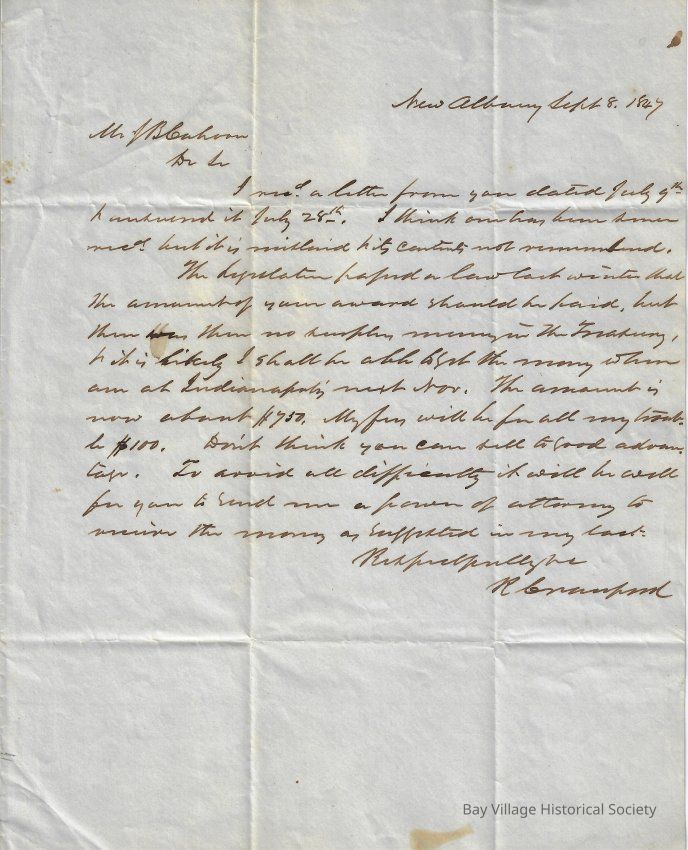 New Albany Sept 8. 1847
Mr J B Cahoon
Dr Sr
I recd. a letter from you dated July 9th
& answered it July 28th. I think one has been since
recd. but it is mislaid & its contents not remembered.
The Legislature passed a law last winter that
the amount of your award should be paid, but
there was then no surplus money in the Treasury,
& it is likely I shall be able to get the money when
am at Indianapolis next Nov. The amount is
now about $750. My fees will be for all my troub-
le $100. Don't think you can sell to good advan-
tage. To avoid all difficulty it will be well
for you to send me a power of attorney to
receive the money as suggested in my last.
Respectfully &c
R Crawford
Bay Village Historical Society